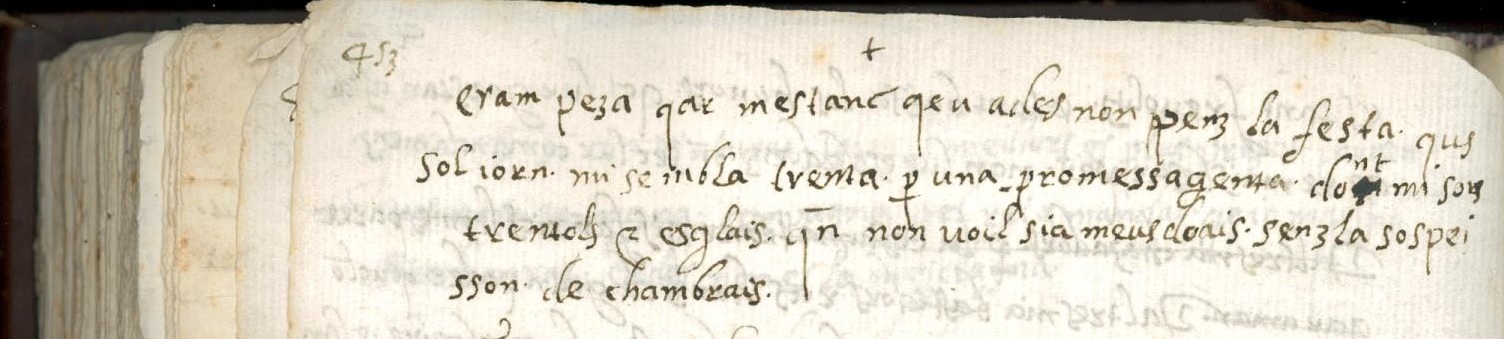 453 +
eram peza qar mestanc qeu ades non penz la festa. qus
sol iorn. mi sembla trenta. p̱ una promessa genta. dont mi sors
trentols ⁊ esglais. qn̄ non uoil sia meus doais. senz la sospei
sson. de chambrais.